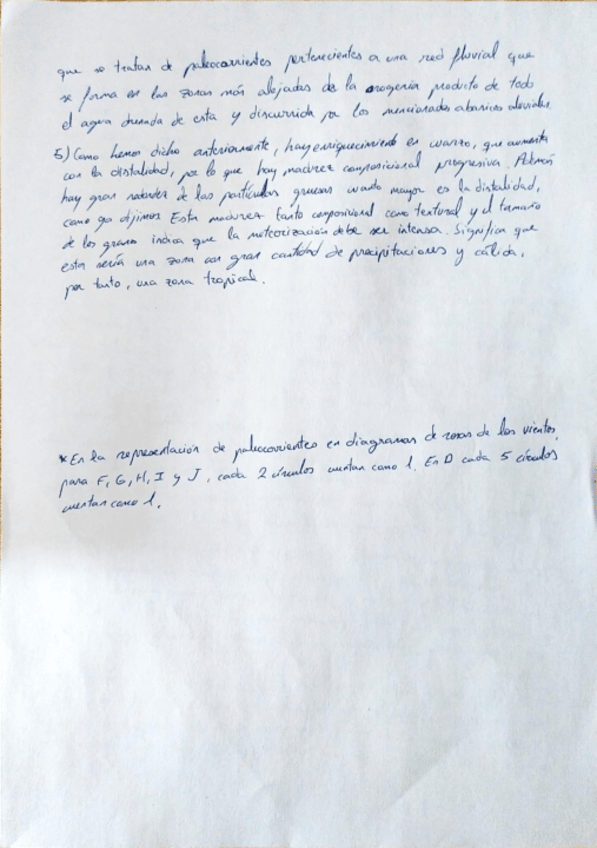 que se tratan de paleocorrientes pertenecientes a una red fluvial que
se forma en las zonas más alejadas de la orogenia producto de todo
el agua drenada de esta y discurrida por los mencionados abanicos aluviales.
5) Como hemos dicho anteriormente, hay enriquecimiento en cuarzo, que aumenta
con la distalidad, por lo que hay madurez composicional progresiva. Además
hay gran redondez de las partículas gruesas cuando mayor es la distalidad,
como ya dijimos. Esta madurez tanto composicional como textural y el tamaño
de los granos indica que la meteorización debe ser intensa. Significa que
esta sería una zona con gran cantidad de precipitaciones y cálida,
por tanto, una zona tropical.
*En la representación de paleocorrientes en diagramas de rosas de los vientos,
para F, G, H, I y J, cada 2 círculos cuentan como 1. En D cada 5 círculos
cuentan como 1.